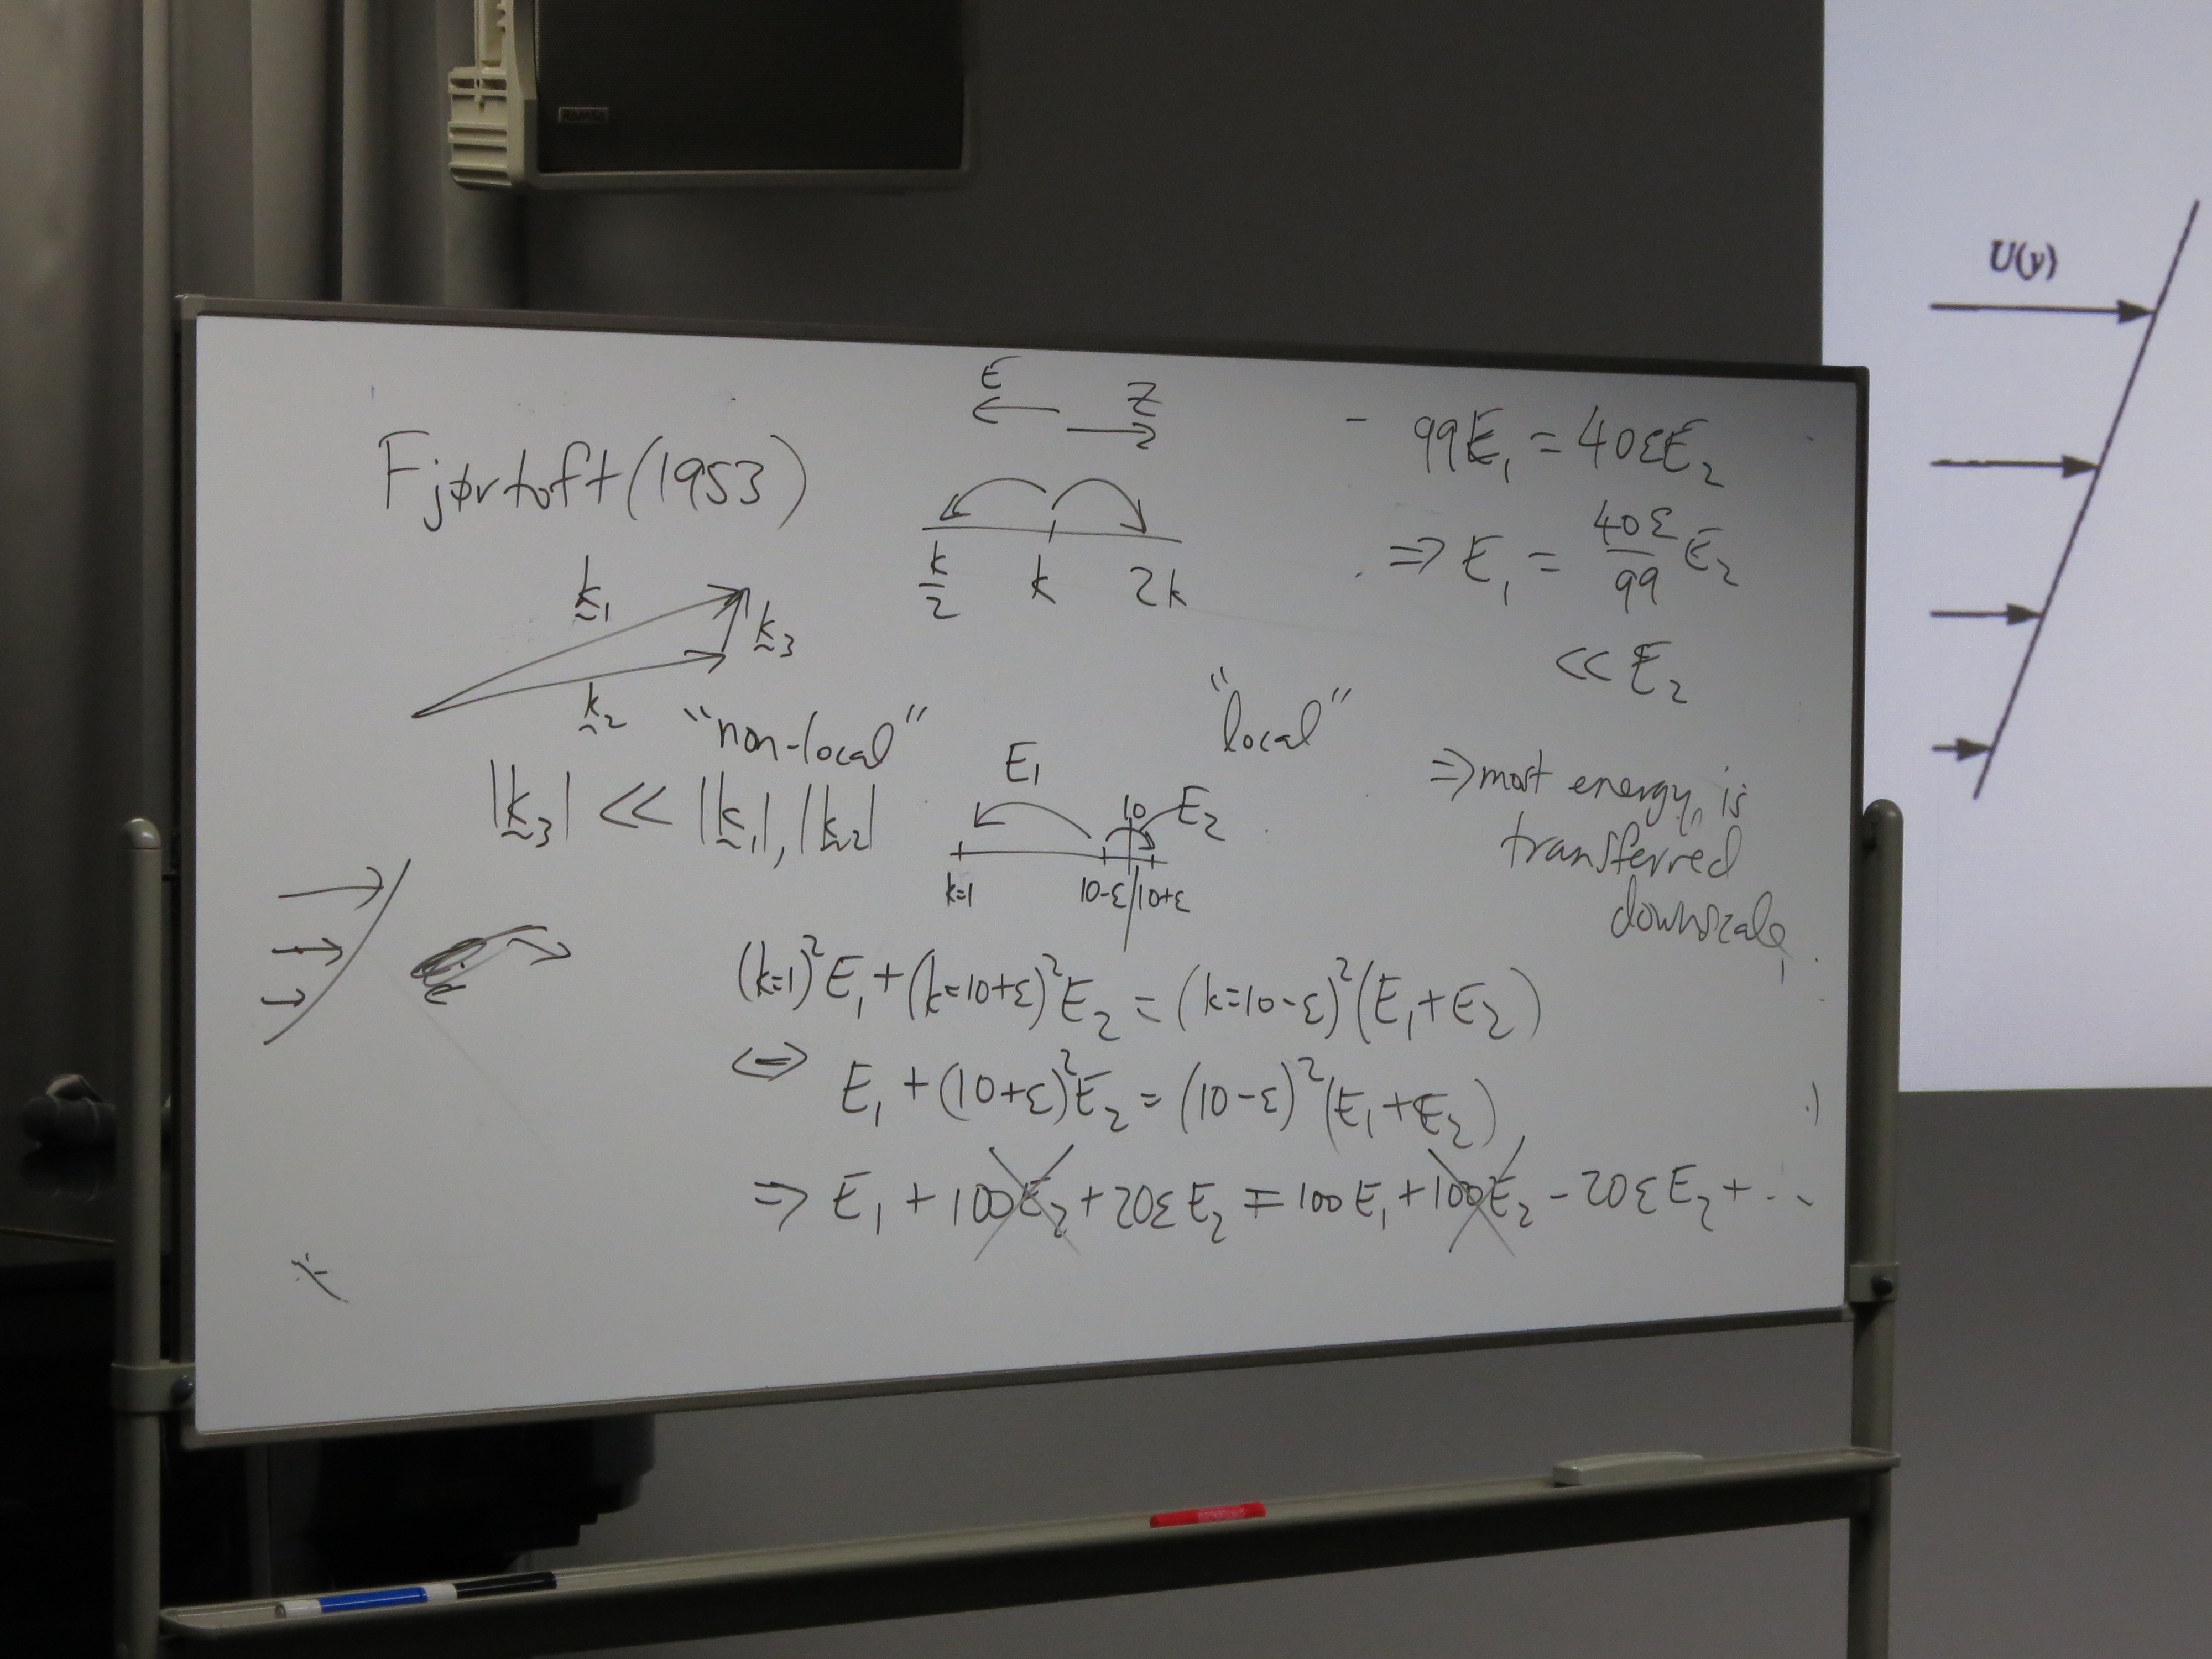 Fjørtoft (1953)
E
Z
k/2 k 2k
k₁
k₃
k₂
"non-local"
|k₃| << |k₁|, |k₂|
"local"
E₁
10
E₂
k=1 10-ε 10+ε
(k=1)²E₁ + (k=10+ε)²E₂ = (k=10-ε)²(E₁+E₂)
⇔ E₁ + (10+ε)²E₂ = (10-ε)²(E₁+E₂)
⇒ E₁ + 100E₂ + 20εE₂ = 100E₁ + 100E₂ - 20εE₂ + ...
99E₁ = 40εE₂
⇒ E₁ = 40ε/99 E₂
<< E₂
⇒ most energy is
transferred
downscale
U(y)